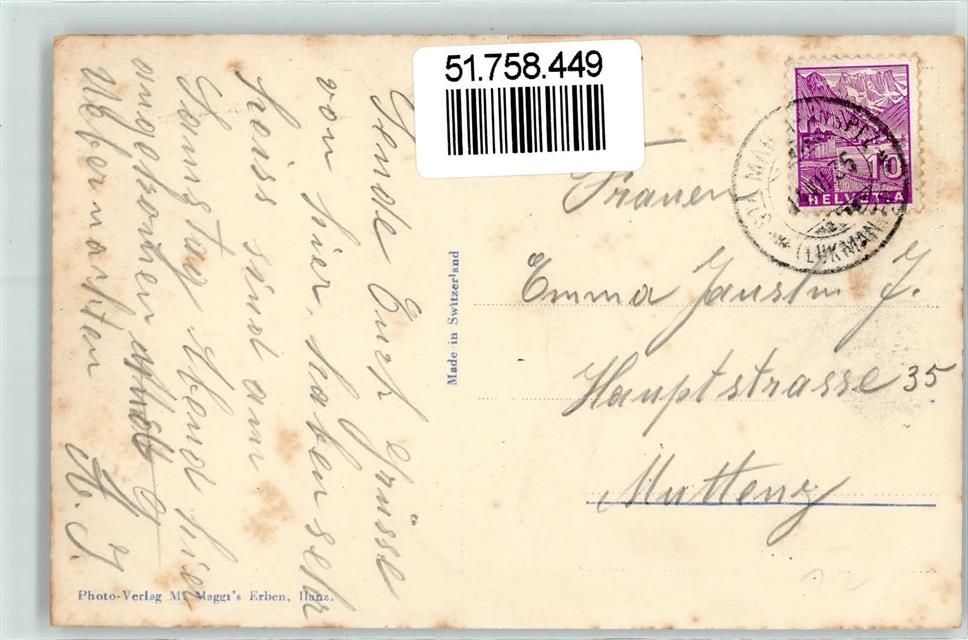 51.758.449
Sende Euch Grüsse
von hier haben sehr
heiss sind am
Samstag Abend hier
angekommen
Übernachten
H. J.
10
HELVETIA
(LUKMANIER)
Frauen
Emma Jauslin J.
Hauptstrasse 35
Muttenz
Made in Switzerland
Photo-Verlag M. Maggi's Erben, Ilanz.